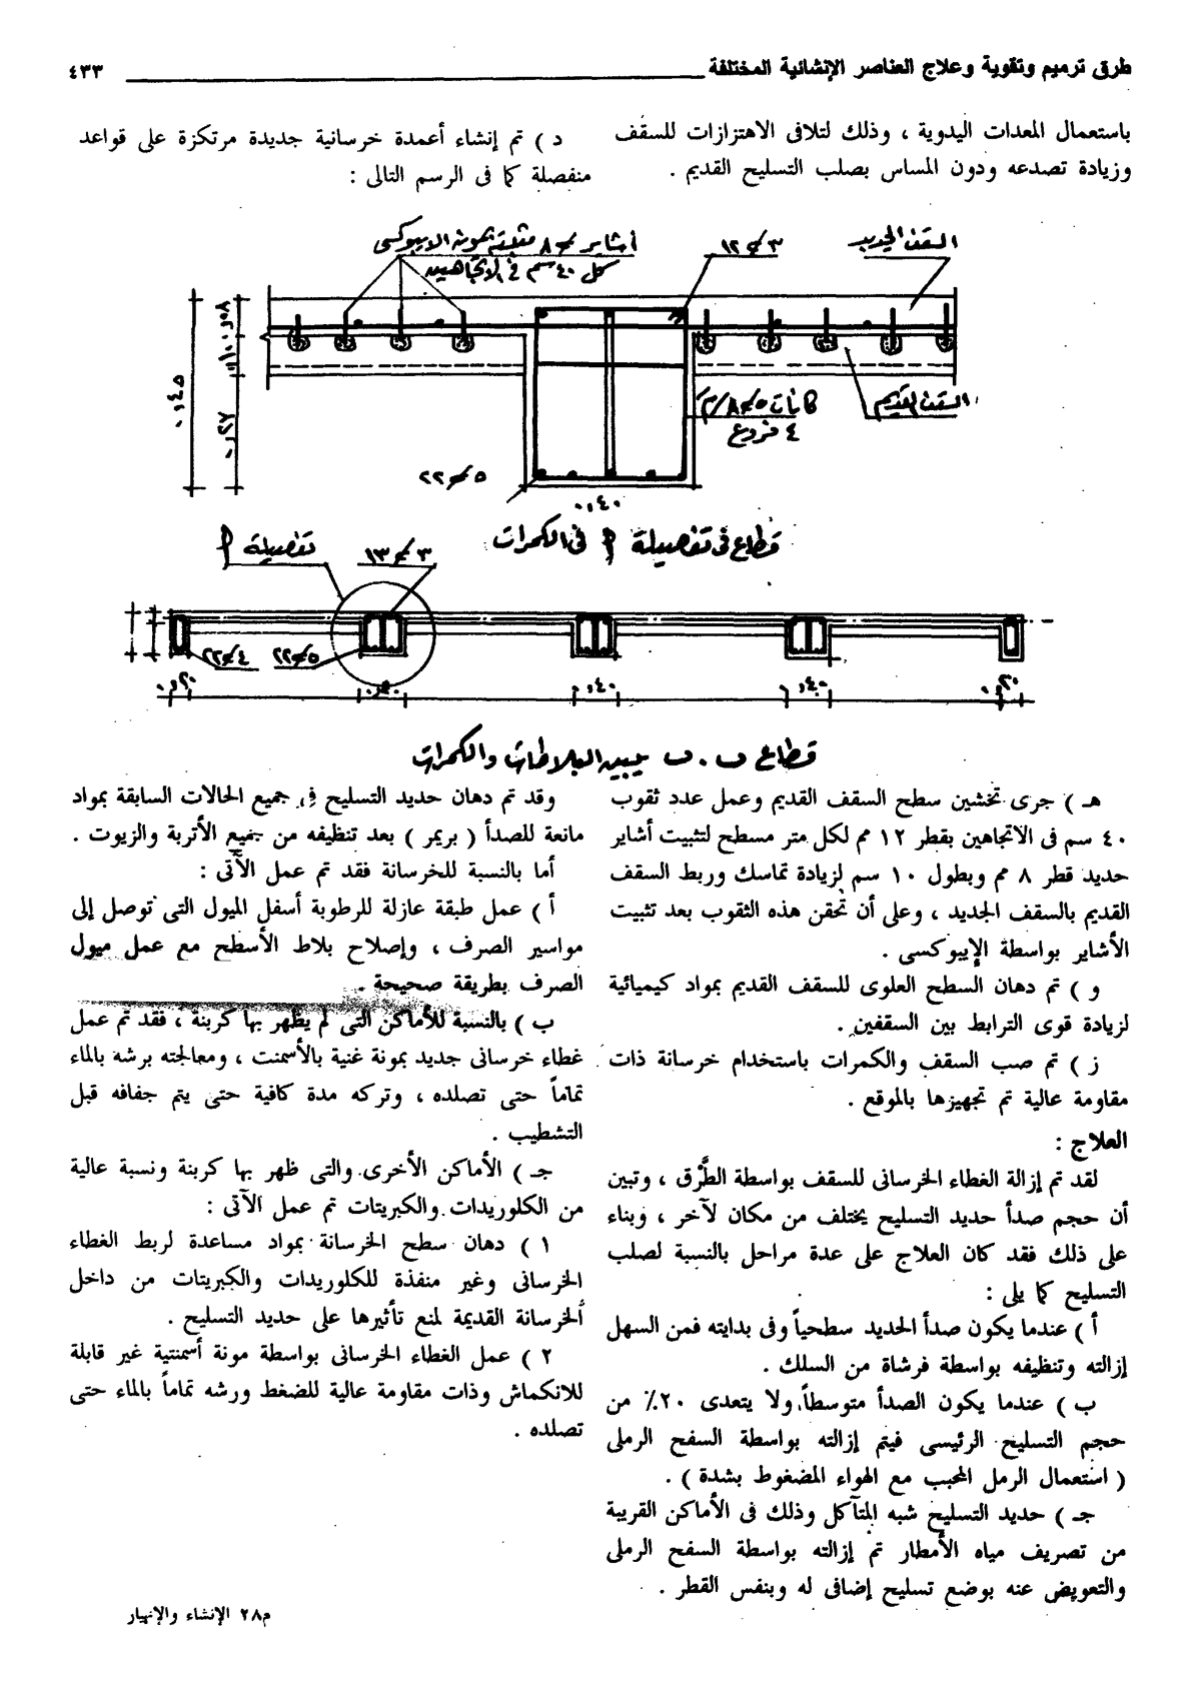 طرق ترميم وتقوية وعلاج العناصر الإنشائية المختلفة ٤٣٣
باستعمال المعدات اليدوية ، وذلك لتلافى الاهتزازات للسقف
وزيادة تصدعه ودون المساس بصلب التسليح القديم .
د ) تم إنشاء أعمدة خرسانية جديدة مرتكزة على قواعد
منفصلة كما فى الرسم التالى :
أشاير ⌀ ٨ مثبتة بمونة الايبوكسى
كل ٤٠ سم فى الاتجاهين
٣ ⌀ ١٢
السقف الجديد
السقف القديم
كانات ٥ ⌀ ٨ / م
٤ فروع
٥ ⌀ ٢٢
٠,٤٥
٠,٠٨
٠,١٠
٠,٢٧
٠,٤٠
قطاع فى تفصيلة أ فى الكمرات
تفصيلة أ
٣ ⌀ ١٣
٤ ⌀ ٢٢
٥ ⌀ ٢٢
٠,٢٠
٠,٤٠
٠,٤٠
٠,٤٠
٠,٢٠
قطاع ب . ب يبين البلاطات والكمرات
هـ ) جرى تخشين سطح السقف القديم وعمل عدد ثقوب
٤٠ سم فى الاتجاهين بقطر ١٢ مم لكل متر مسطح لتثبيت أشاير
حديد قطر ٨ مم وبطول ١٠ سم لزيادة تماسك وربط السقف
القديم بالسقف الجديد ، وعلى أن تحقن هذه الثقوب بعد تثبيت
الأشاير بواسطة الإيبوكسى .
و ) تم دهان السطح العلوى للسقف القديم بمواد كيميائية
لزيادة قوى الترابط بين السقفين .
ز ) تم صب السقف والكمرات باستخدام خرسانة ذات
مقاومة عالية تم تجهيزها بالموقع .
العلاج :
لقد تم إزالة الغطاء الخرسانى للسقف بواسطة الطَّرق ، وتبين
أن حجم صدأ حديد التسليح يختلف من مكان لآخر ، وبناء
على ذلك فقد كان العلاج على عدة مراحل بالنسبة لصلب
التسليح كما يلى :
أ ) عندما يكون صدأ الحديد سطحياً وفى بدايته فمن السهل
إزالته وتنظيفه بواسطة فرشاة من السلك .
ب ) عندما يكون الصدأ متوسطاً ولا يتعدى ٢٠٪ من
حجم التسليح الرئيسى فيتم إزالته بواسطة السفح الرملى
( استعمال الرمل المحبب مع الهواء المضغوط بشدة ) .
جـ ) حديد التسليح شبه المتآكل وذلك فى الأماكن القريبة
من تصريف مياه الأمطار تم إزالته بواسطة السفح الرملى
والتعويض عنه بوضع تسليح إضافى له وبنفس القطر .
وقد تم دهان حديد التسليح فى جميع الحالات السابقة بمواد
مانعة للصدأ ( بريمر ) بعد تنظيفه من جميع الأتربة والزيوت .
أما بالنسبة للخرسانة فقد تم عمل الآتى :
أ ) عمل طبقة عازلة للرطوبة أسفل الميول التى توصل إلى
مواسير الصرف ، وإصلاح بلاط الأسطح مع عمل ميول
الصرف بطريقة صحيحة .
ب ) بالنسبة للأماكن التى لم يظهر بها كربنة ، فقد تم عمل
غطاء خرسانى جديد بمونة غنية بالأسمنت ، ومعالجته برشه بالماء
تماماً حتى تصلده ، وتركه مدة كافية حتى يتم جفافه قبل
التشطيب .
جـ ) الأماكن الأخرى والتى ظهر بها كربنة ونسبة عالية
من الكلوريدات والكبريتات تم عمل الآتى :
١ ) دهان سطح الخرسانة بمواد مساعدة لربط الغطاء
الخرسانى وغير منفذة للكلوريدات والكبريتات من داخل
الخرسانة القديمة لمنع تأثيرها على حديد التسليح .
٢ ) عمل الغطاء الخرسانى بواسطة مونة أسمنتية غير قابلة
للانكماش وذات مقاومة عالية للضغط ورشه تماماً بالماء حتى
تصلده .
م٢٨ الإنشاء والإنهيار